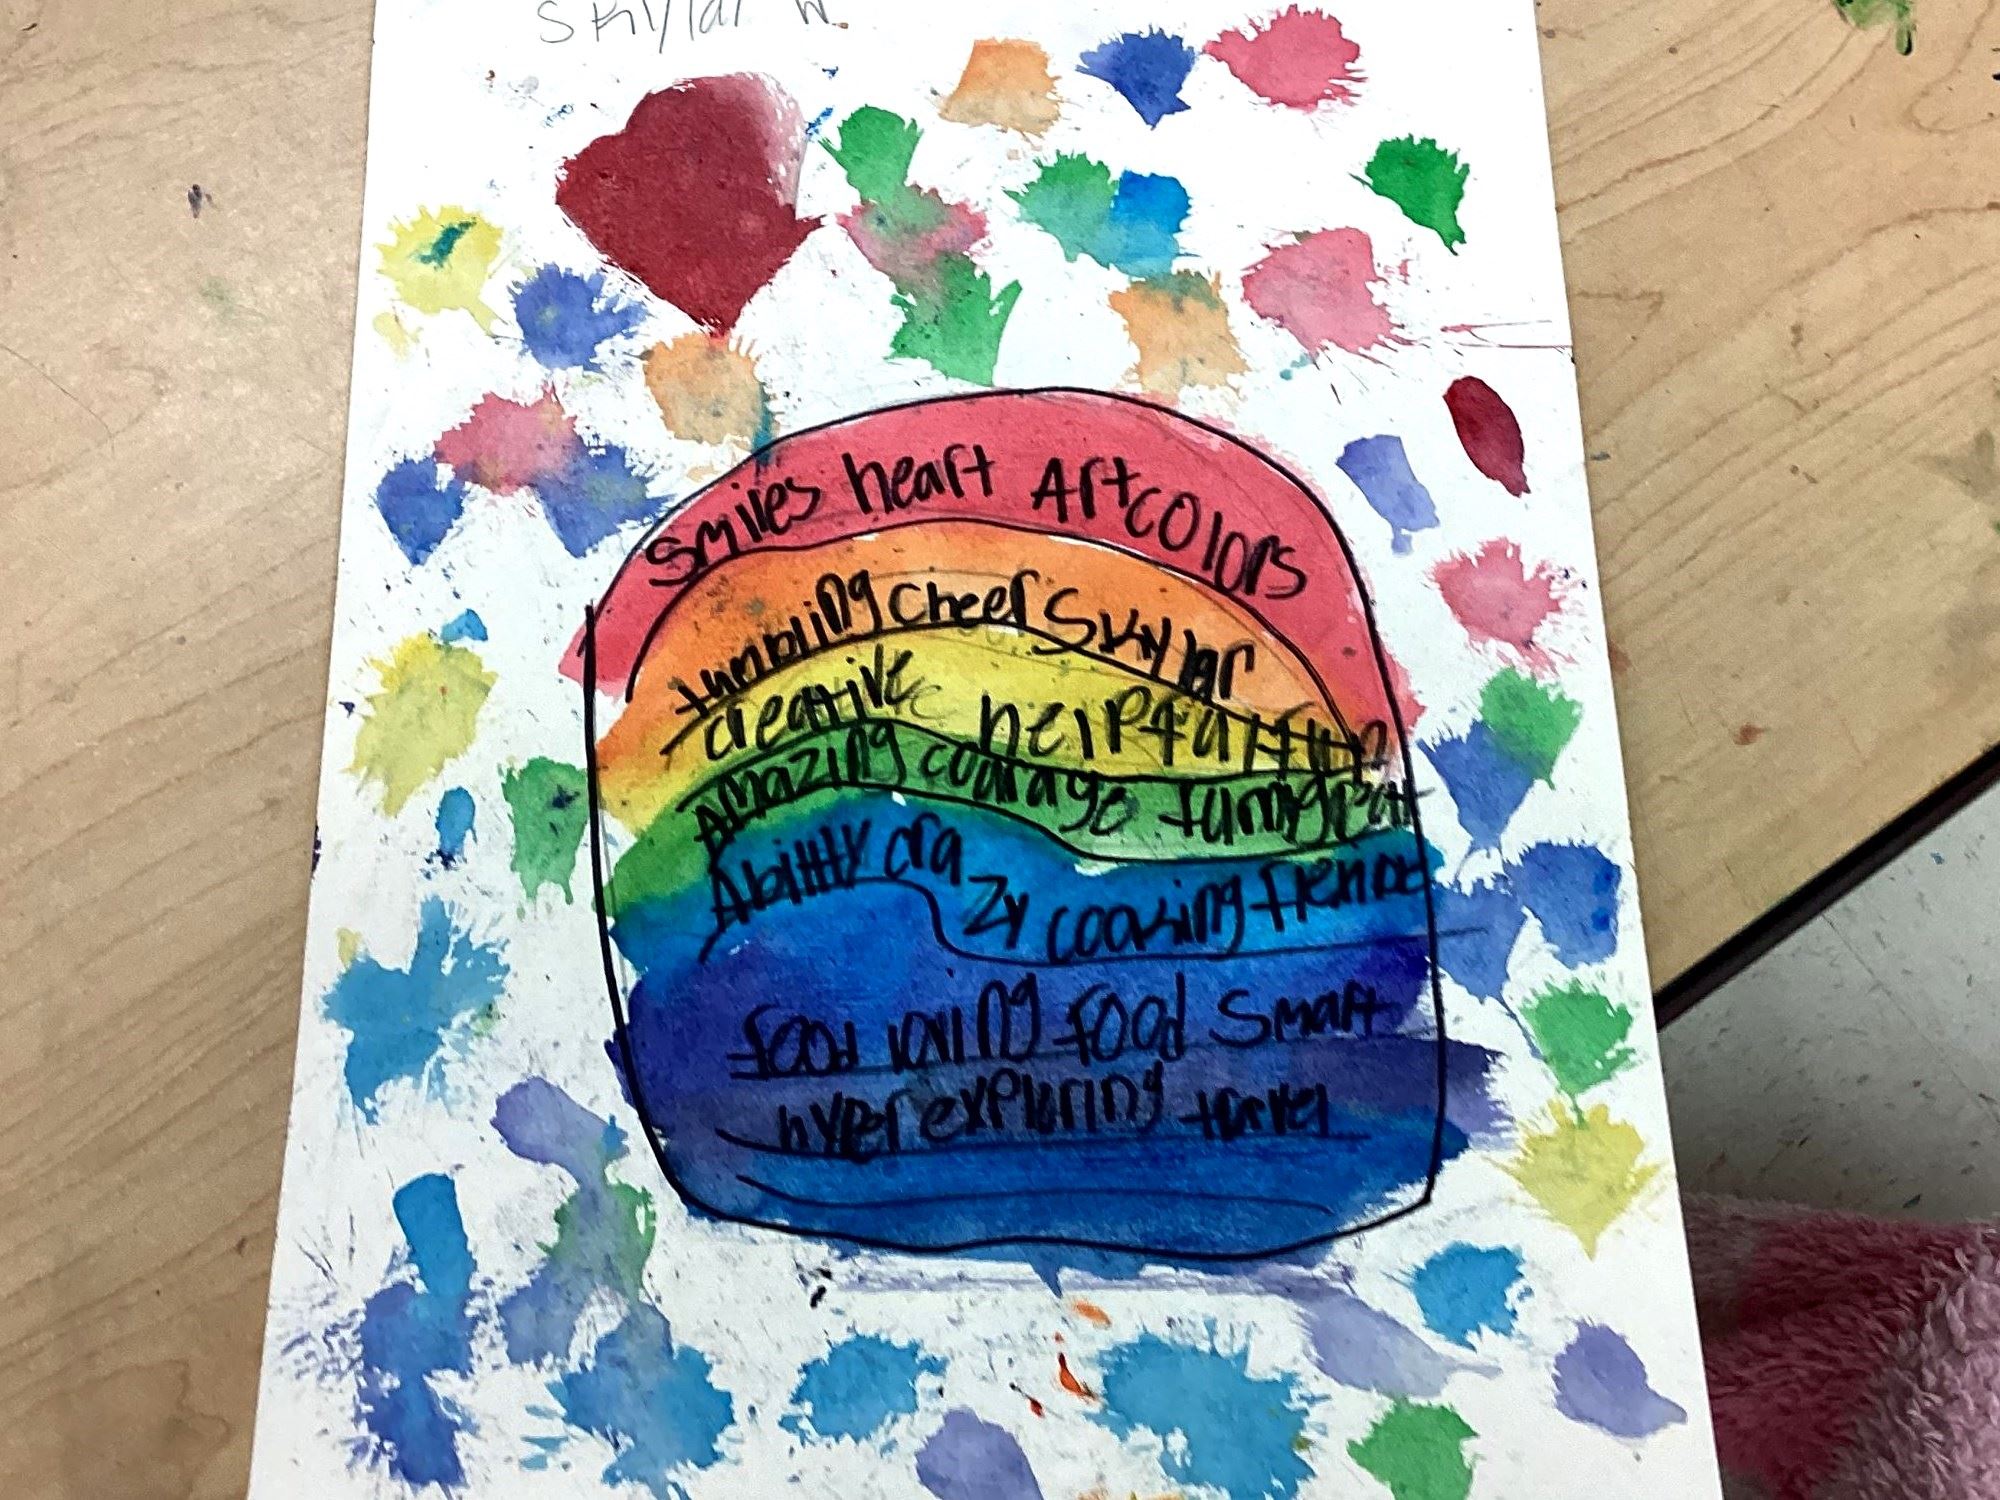 Skylar W
Smiles heart Art colors
tumbling cheer Skylar
creative helpful fun
Amazing courage
Abiltty crazy cooking
food loving food Smart
hyper exploring